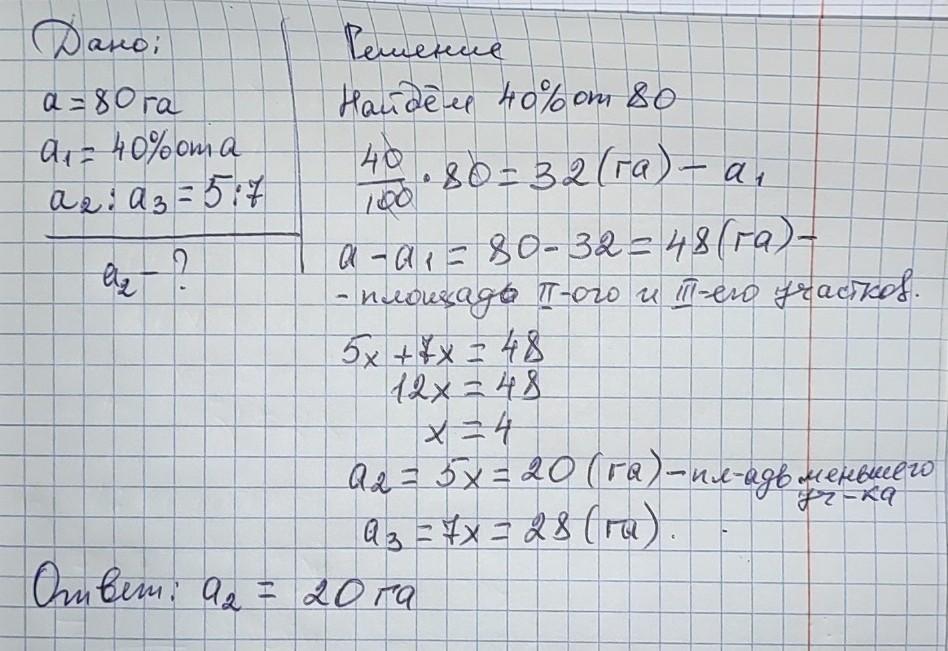 Дано:
a = 80 га
a₁ = 40% от a
a₂ : a₃ = 5:7
a₂ - ?
Решение
Найдём 40% от 80
40/100 · 80 = 32 (га) - a₁
a - a₁ = 80 - 32 = 48 (га) -
- площадь II-ого и III-его участков.
5x + 7x = 48
12x = 48
x = 4
a₂ = 5x = 20 (га) - пл-адь меньшего
уч-ка
a₃ = 7x = 28 (га).
Ответ: a₂ = 20 га